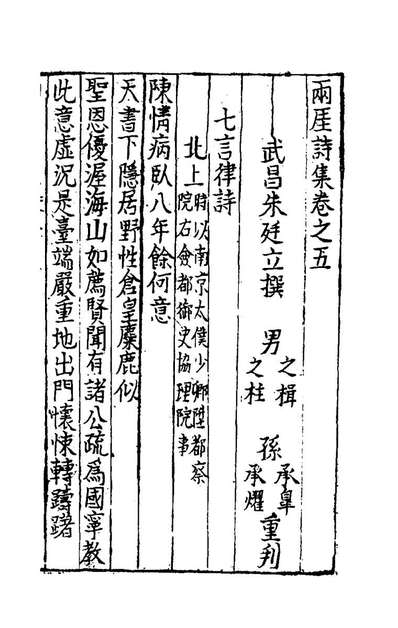 兩厓詩集卷之五
武昌朱廷立撰　男之楫之柱　孫承臯承燿重刋
七言律詩
北上時以南京太僕少卿陞都察院右僉都御史協理院事
陳情病臥八年餘何意
天書下隱居野性倉皇麋鹿似
聖恩優渥海山如薦賢聞有諸公疏爲國寧教
此意虛況是臺端嚴重地出門懷悚轉躊躇